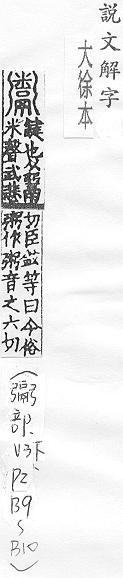 說文解字
大徐本
鬻
䭈也从䰜
米聲武悲
切臣鉉等曰今俗
粥作粥音之六切
(䰜部
V3下
P2
B9
~
B10)